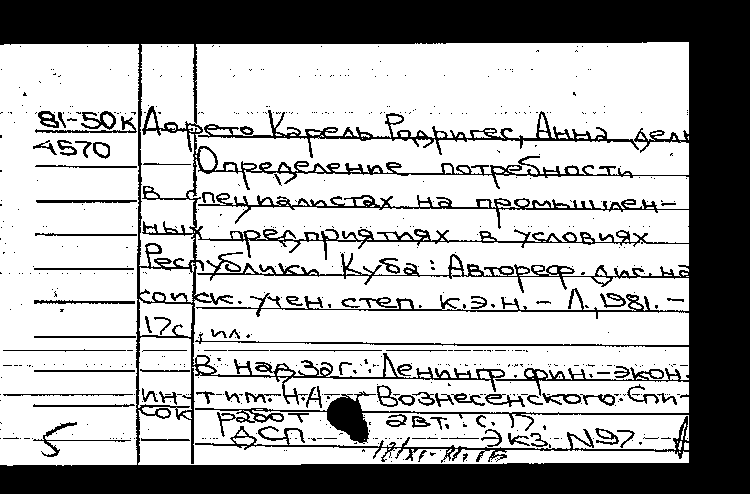 81-50к Дорето Карель Родригес, Анна дель
4570 Определение потребности
в специалистах на промышлен-
ных предприятиях в условиях
Республики Куба: Автореф. дис. на
соиск. учен. степ. к.э.н. - Л., 1981. -
17с., ил.
В надзаг.: Ленингр. фин.-экон.
ин-т им. Н.А. Вознесенского. Спи-
сок работ авт.: с. 17.
5 ДСП. Экз. N97.